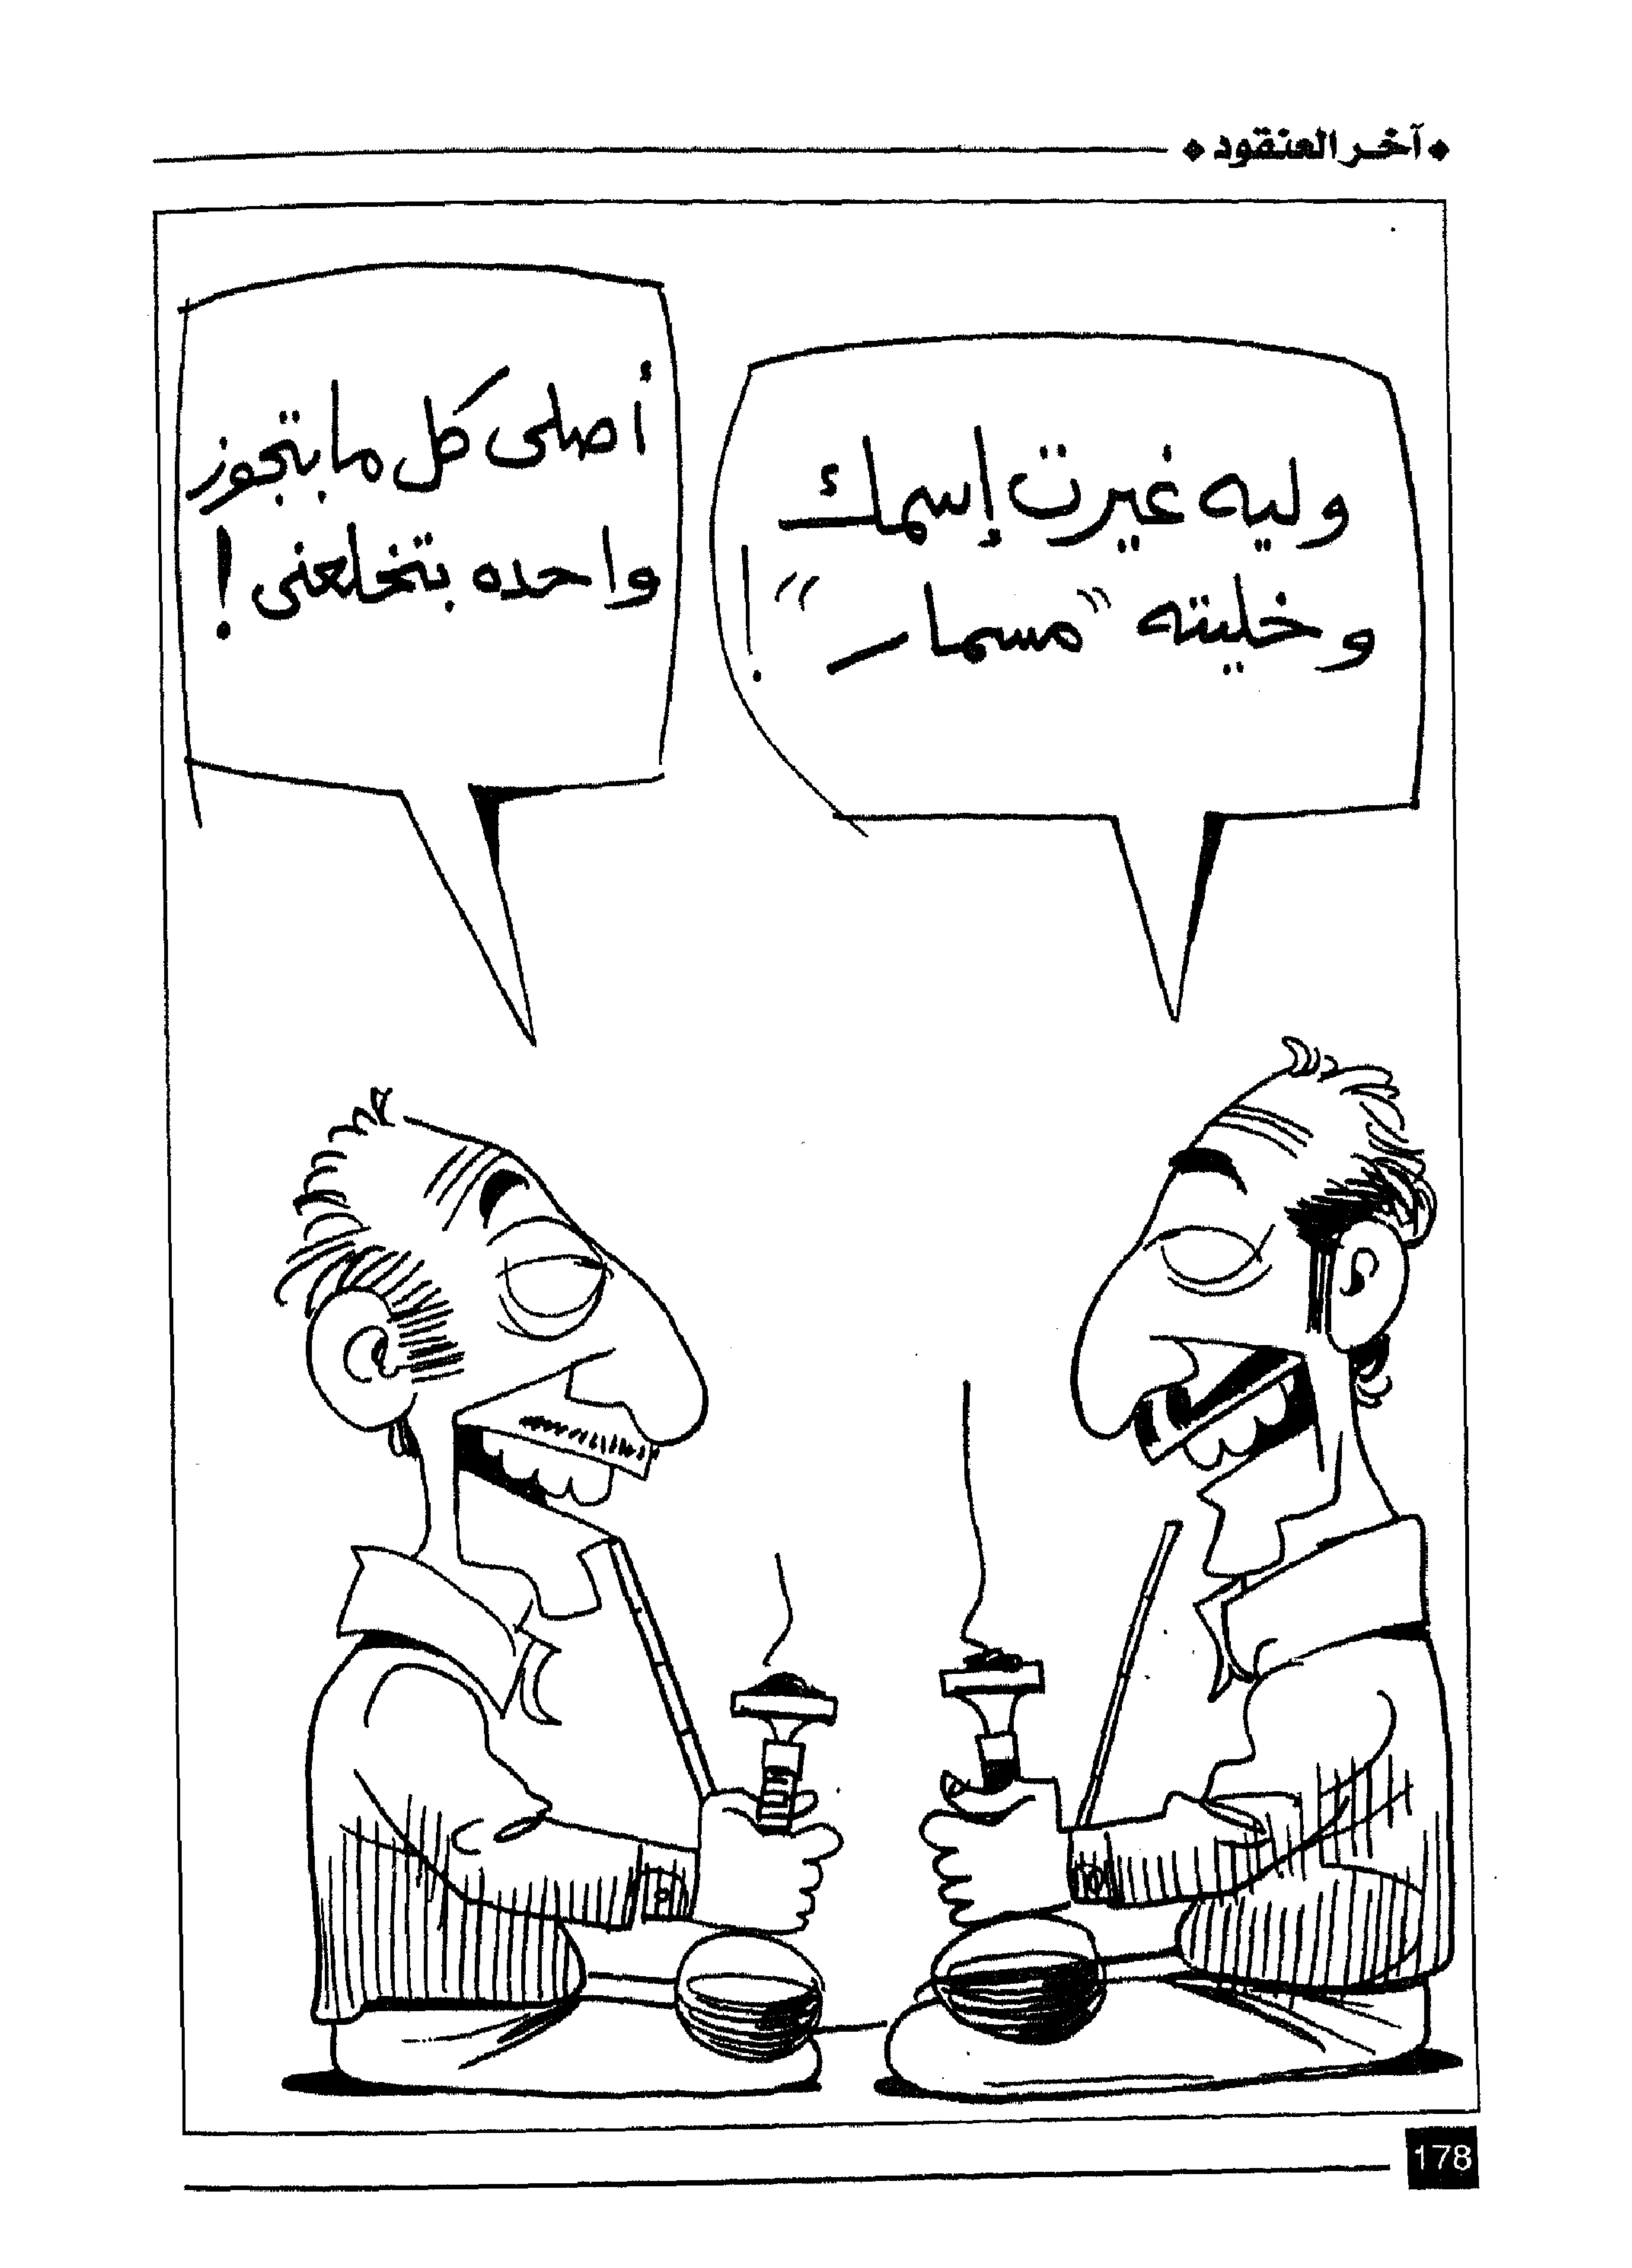 آخر العنقود
وليه غيرت إسمك
وخليته "مسمار"!
أصلى كل مابتجوز
واحده بتخلعنى!
178